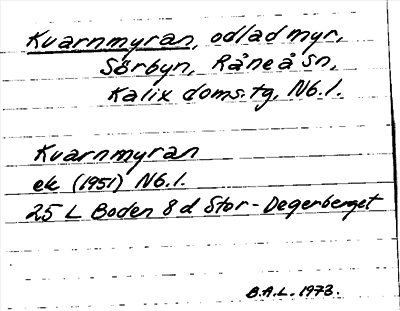 Kvarnmyran, odlad myr,
Sörbyn, Råneå sn,
Kalix doms.tg, Nb.l.
Kvarnmyran
ek (1951) Nb.l.
25 L Boden 8 d Stor-Degerberget
B.A.L. 1973.